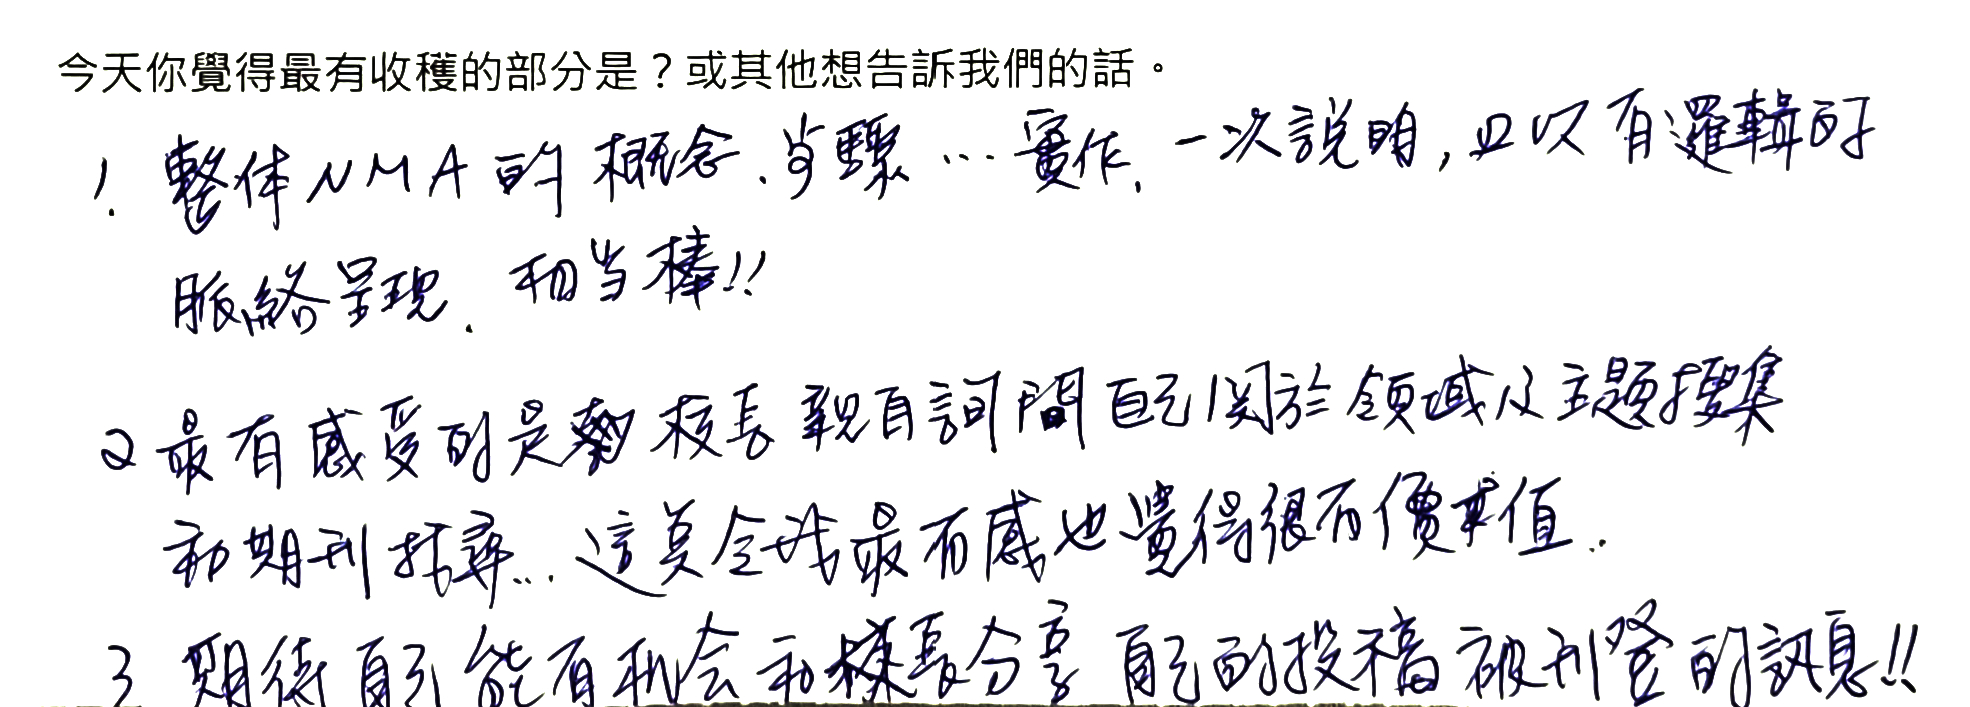 今天你覺得最有收穫的部分是？或其他想告訴我們的話。
1. 整体NMA的概念、步驟…實作、一次說明，且以有邏輯的
脈絡呈現、相当棒!!
2 最有感受的是 校長親自詢問自己関於領域及主題搜集
和期刊找尋…這真令我最有感也覺得很有價值..
3 期待自己能有机会和校長分享自己的投稿被刊登的訊息!!